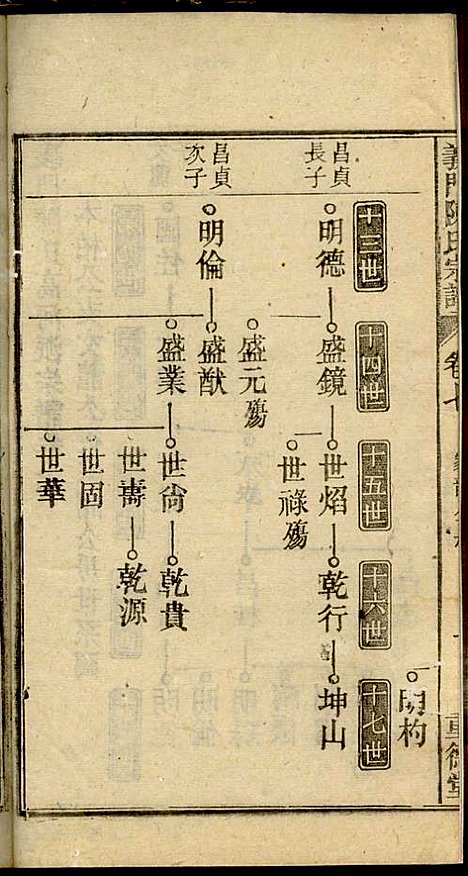 義門陳氏宗譜
卷七
重德堂
明杓
十三世
十四世
十五世
十六世
十七世
昌貞長子
明德
盛鏡
世焰
乾行
坤山
世祿殤
盛元殤
昌貞次子
明倫
盛猷
盛業
世尙
乾貴
世壽
乾源
世固
世華